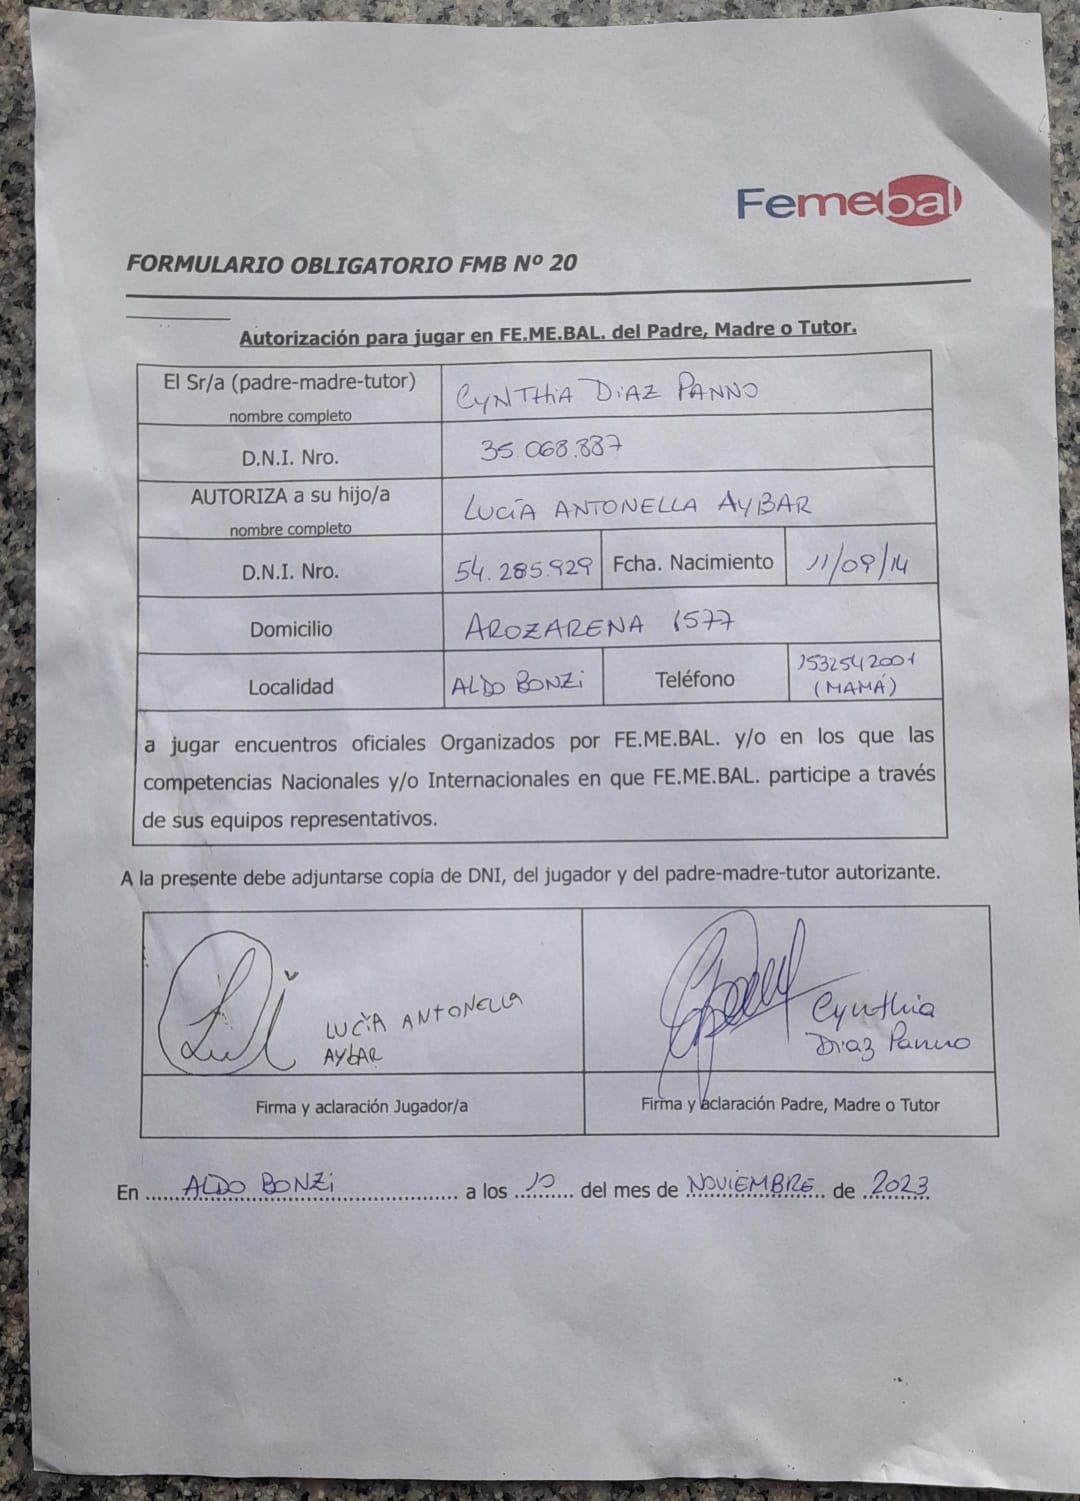 Femebal
FORMULARIO OBLIGATORIO FMB Nº 20
Autorización para jugar en FE.ME.BAL. del Padre, Madre o Tutor.
El Sr/a (padre-madre-tutor)
nombre completo
CYNTHIA DIAZ PANNO
D.N.I. Nro.
35.068.887
AUTORIZA a su hijo/a
nombre completo
LUCÍA ANTONELLA AYBAR
D.N.I. Nro.
54.285.929
Fcha. Nacimiento
11/09/14
Domicilio
AROZARENA 1577
Localidad
ALDO BONZI
Teléfono
1532542001
(MAMÁ)
a jugar encuentros oficiales Organizados por FE.ME.BAL. y/o en los que las
competencias Nacionales y/o Internacionales en que FE.ME.BAL. participe a través
de sus equipos representativos.
A la presente debe adjuntarse copia de DNI, del jugador y del padre-madre-tutor autorizante.
LUCÍA ANTONELLA
AYBAR
Cynthia
Diaz Panno
Firma y aclaración Jugador/a
Firma y aclaración Padre, Madre o Tutor
En ALDO BONZI a los 10 del mes de NOVIEMBRE de 2023